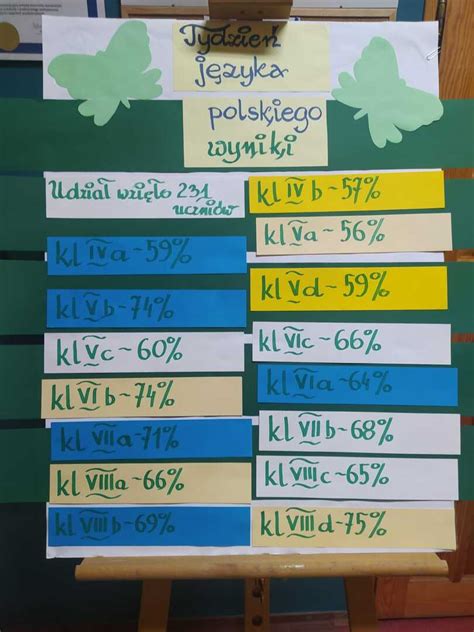 Tydzień
języka
polskiego
wyniki
Udział wzięło 231
uczniów
kl IV b ~ 57%
kl V a ~ 56%
kl IV a ~ 59%
kl V d ~ 59%
kl V b ~ 74%
kl VI c ~ 66%
kl V c ~ 60%
kl VI a ~ 64%
kl VI b ~ 74%
kl VII b ~ 68%
kl VII a ~ 71%
kl VIII c ~ 65%
kl VIII a ~ 66%
kl VIII d ~ 75%
kl VIII b ~ 69%